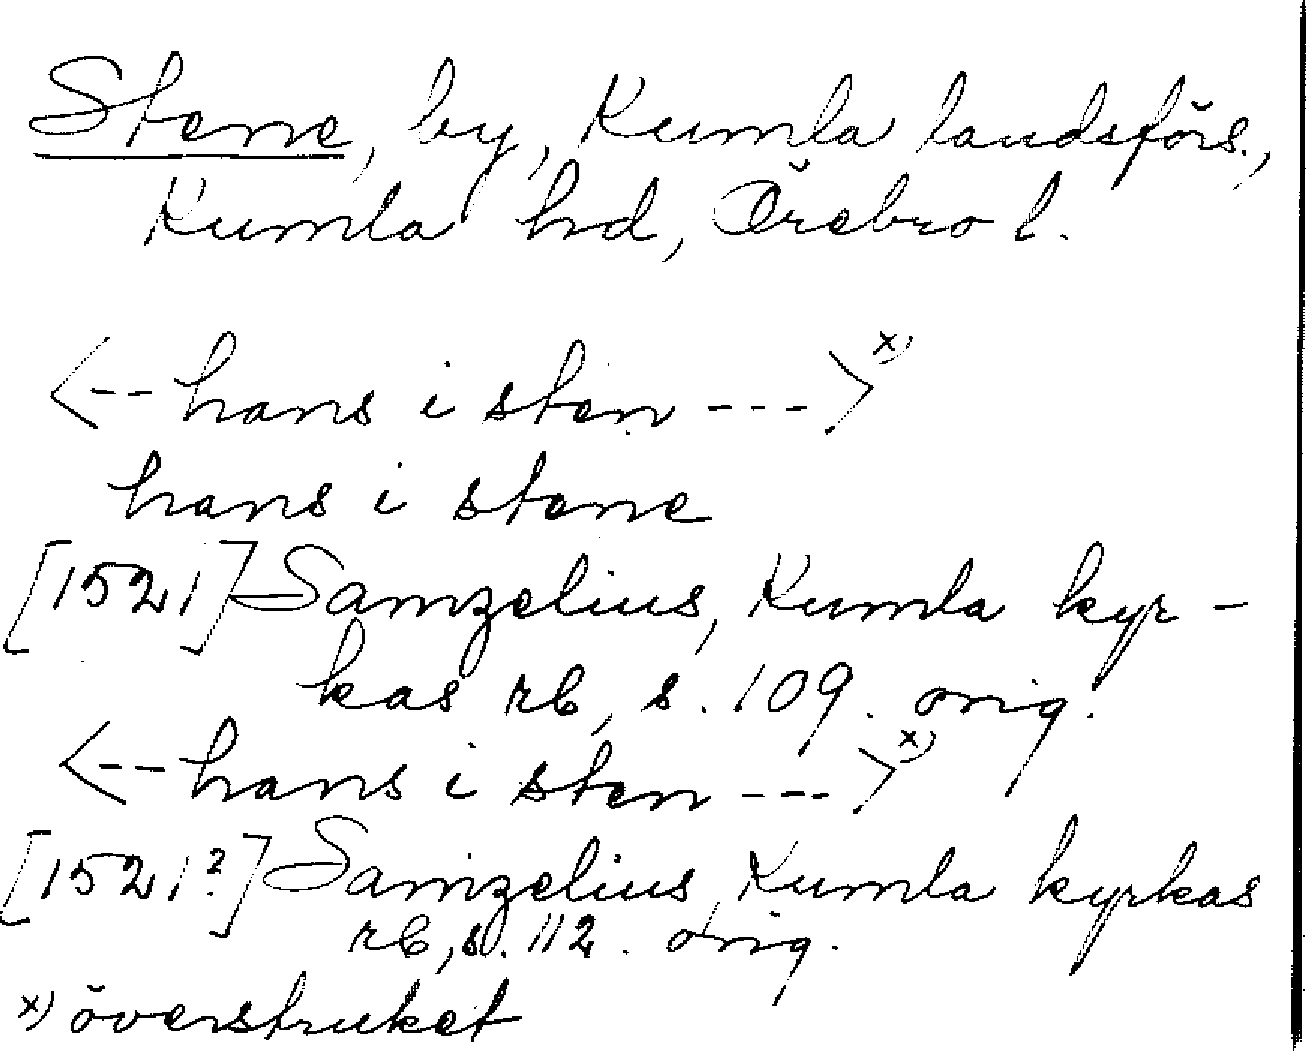 Stene, by, Kumla landsförs.,
Kumla hd, Örebro l.
<-- hans i sten --->x)
hans i stene
[1521] Samzelius, Kumla kyr-
kas rb, s. 109. orig.
<-- hans i sten --->x)
[1521?] Samzelius, Kumla kyrkas
rb, s. 112. orig.
x) överstruket